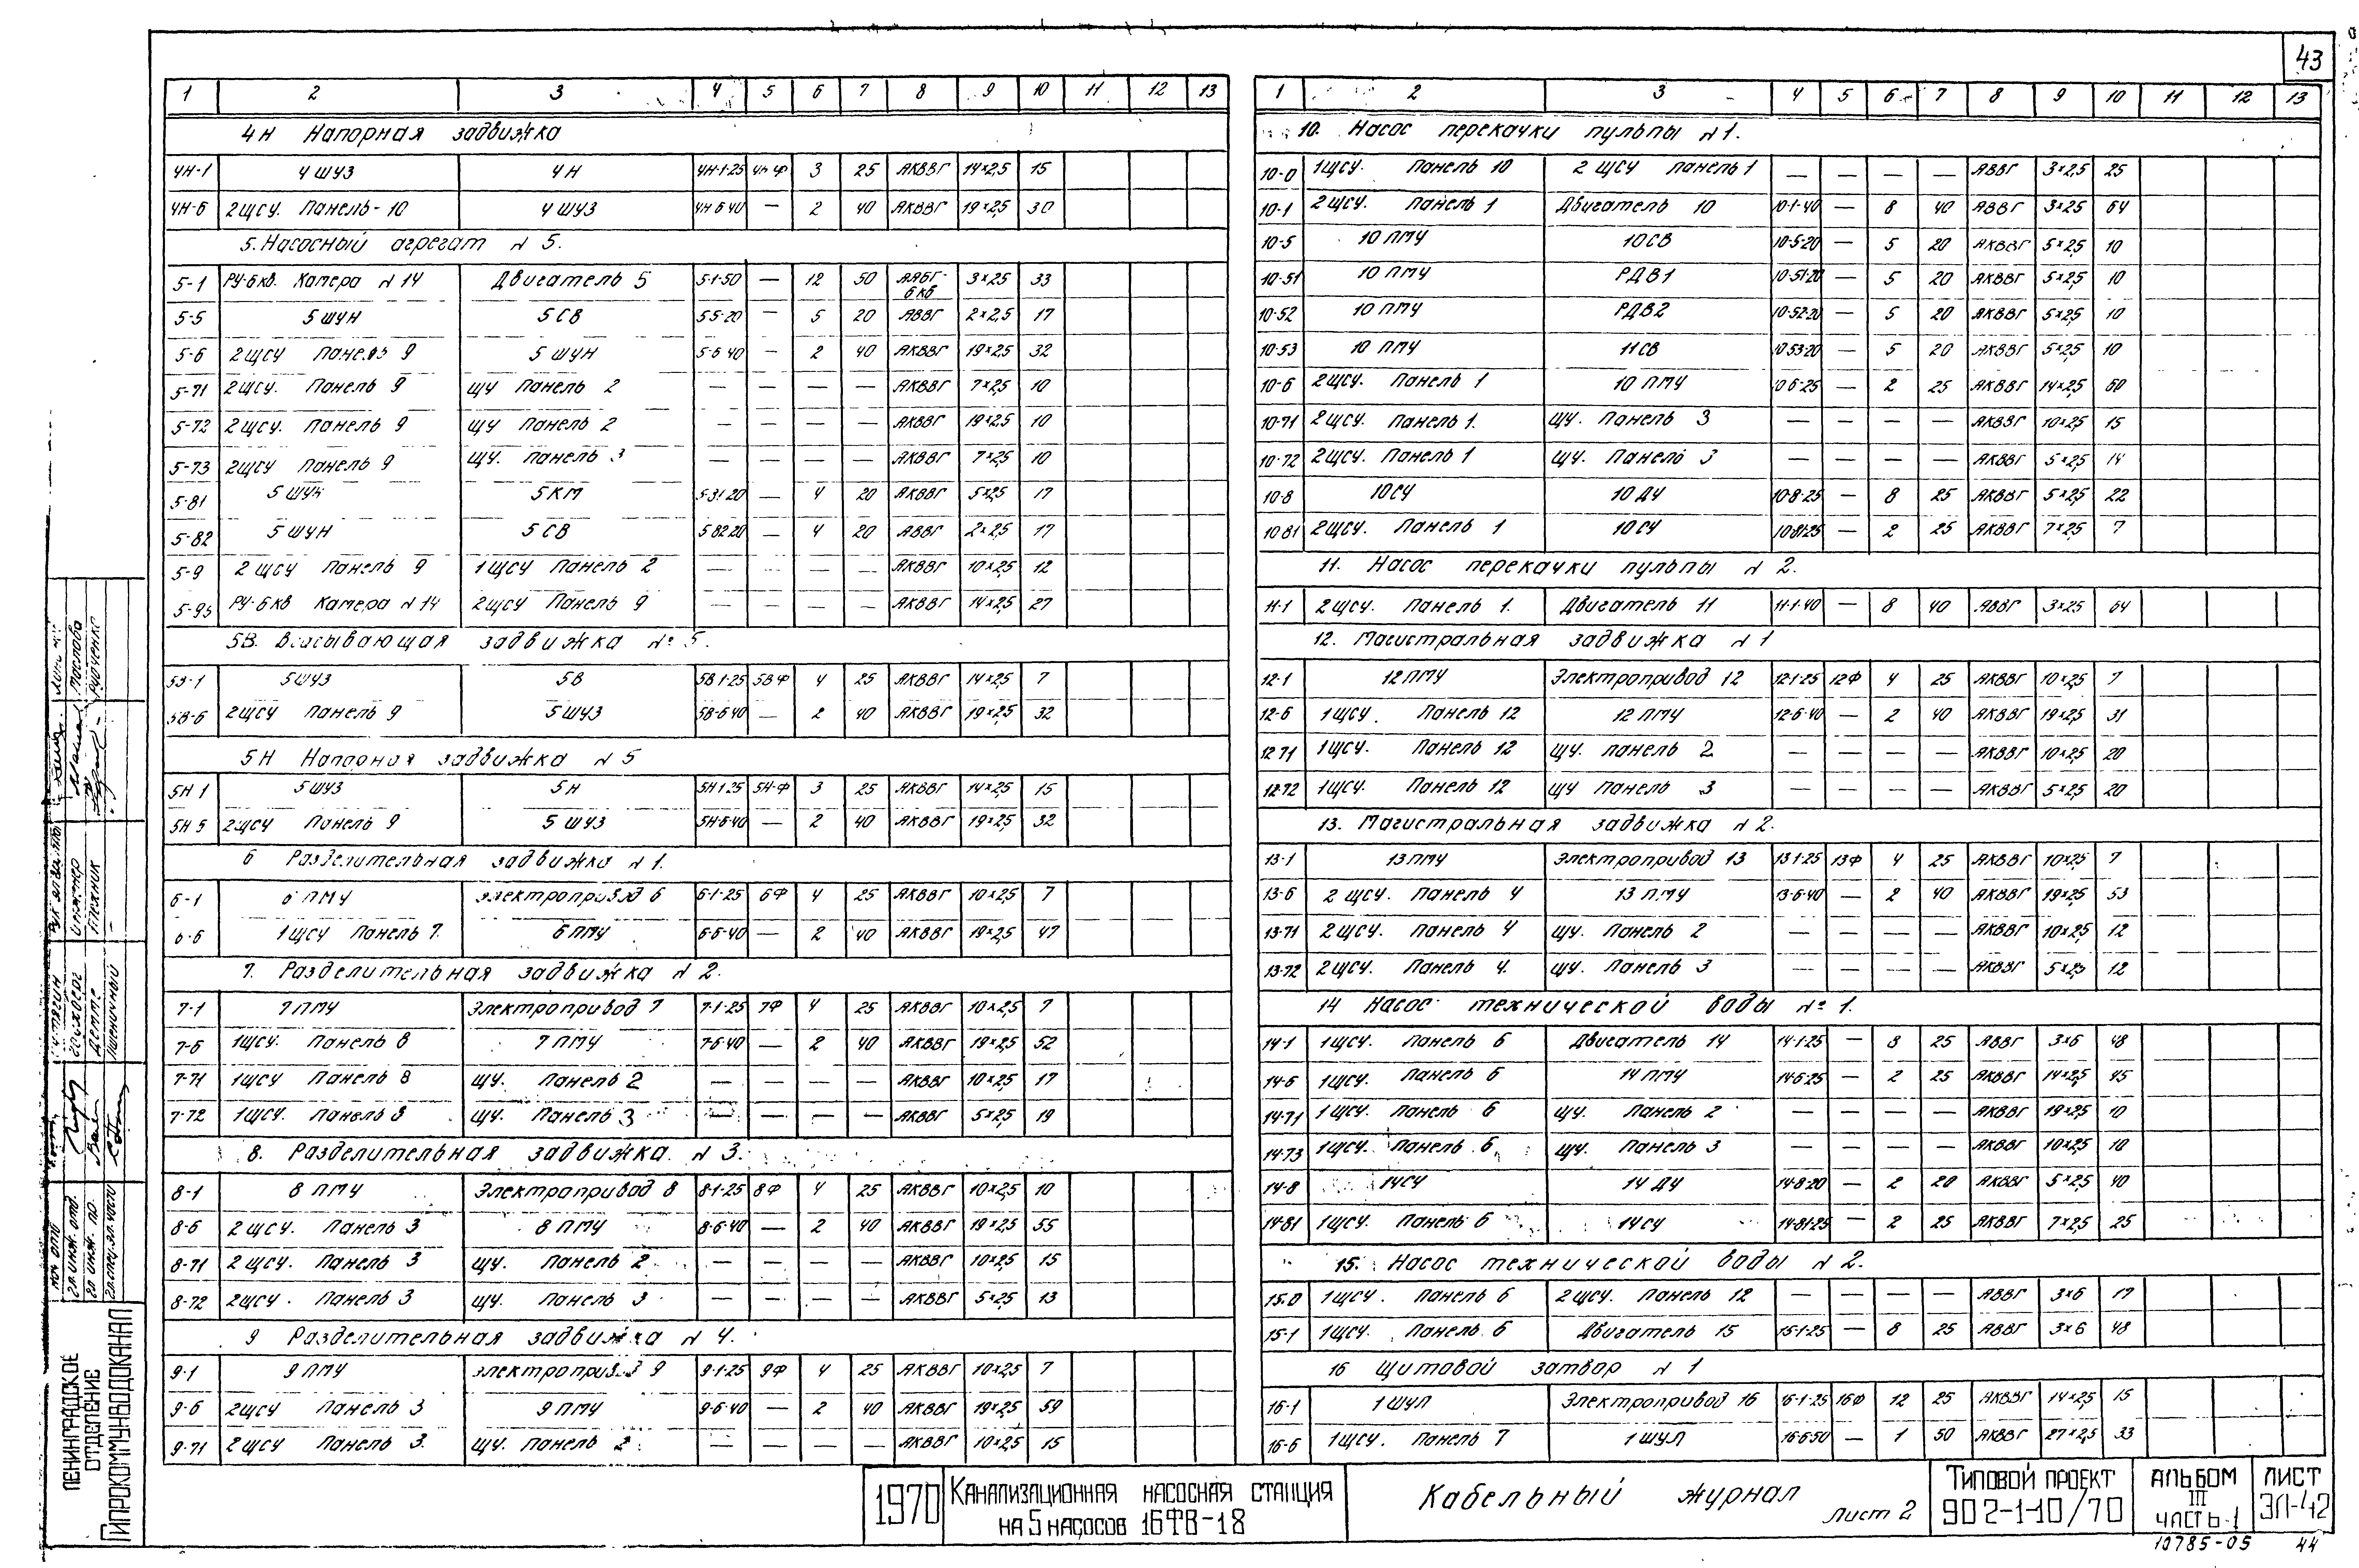 43
1 2 3 4 5 6 7 8 9 10 11 12 13
4Н Напорная задвижка
4Н-1 4 ШУЗ 4Н 4Н-1-25 4Н Ф 3 25 АКВВГ 14×2,5 15
4Н-6 2ЩСУ. Панель-10 4 ШУЗ 4Н 6 40 — 2 40 АКВВГ 19×2,5 30
5. Насосный агрегат N 5.
5-1 РУ-6кв. Камера N 14 Двигатель 5 5-1-50 — 12 50 ААБГ-6кв 3×25 33
5-5 5 ШУН 5 СВ 5-5-20 — 5 20 АВВГ 2×2,5 17
5-6 2ЩСУ Панель 9 5 ШУН 5-6 40 — 2 40 АКВВГ 19×2,5 32
5-71 2ЩСУ. Панель 9 ЩУ Панель 2 — — — — АКВВГ 7×2,5 10
5-72 2ЩСУ. Панель 9 ЩУ Панель 2 — — — — АКВВГ 19×2,5 10
5-73 2ЩСУ Панель 9 ЩУ. Панель 3 — — — — АКВВГ 7×2,5 10
5-81 5 ШУН 5 КМ 5-81 20 — 4 20 АКВВГ 5×2,5 17
5-82 5 ШУН 5 СВ 5 82 20 — 4 20 АВВГ 2×2,5 17
5-9 2 ЩСУ Панель 9 1 ЩСУ Панель 2 — — — — АКВВГ 10×2,5 12
5-95 РУ-6кв Камера N 14 2ЩСУ Панель 9 — — — — АКВВГ 14×2,5 27
5В. Всасывающая задвижка № 5.
5В-1 5ШУЗ 5В 5В 1-25 5В Ф 4 25 АКВВГ 14×2,5 7
5В-6 2ЩСУ Панель 9 5 ШУЗ 5В-6 40 — 2 40 АКВВГ 19×2,5 32
5Н Напорная задвижка N 5
5Н 1 5 ШУЗ 5Н 5Н 1 25 5Н-Ф 3 25 АКВВГ 14×2,5 15
5Н 5 2ЩСУ Панель 9 5 ШУЗ 5Н-6-40 — 2 40 АКВВГ 19×2,5 32
6 Разделительная задвижка N 1.
6-1 6 ПМУ Электропривод 6 6-1-25 6Ф 4 25 АКВВГ 10×2,5 7
6-6 1 ЩСУ Панель 7. 6 ПМУ 6-6-40 — 2 40 АКВВГ 19×2,5 47
7. Разделительная задвижка N 2.
7-1 7 ПМУ Электропривод 7 7-1-25 7Ф 4 25 АКВВГ 10×2,5 7
7-6 1ЩСУ. Панель 8 7 ПМУ 7-6-40 — 2 40 АКВВГ 19×2,5 52
7-71 1ЩСУ Панель 8 ЩУ. Панель 2 — — — — АКВВГ 10×2,5 17
7-72 1ЩСУ. Панель 8 ЩУ. Панель 3 — — — — АКВВГ 5×2,5 19
8. Разделительная задвижка N 3.
8-1 8 ПМУ Электропривод 8 8-1-25 8Ф 4 25 АКВВГ 10×2,5 10
8-6 2 ЩСУ. Панель 3 8 ПМУ 8-6-40 — 2 40 АКВВГ 19×2,5 55
8-71 2 ЩСУ. Панель 3 ЩУ. Панель 2 — — — — АКВВГ 10×2,5 15
8-72 2ЩСУ. Панель 3 ЩУ. Панель 3 — — — — АКВВГ 5×2,5 13
9 Разделительная задвижка N 4.
9-1 9 ПМУ Электропривод 9 9-1-25 9Ф 4 25 АКВВГ 10×2,5 7
9-6 2ЩСУ Панель 3 9 ПМУ 9-6-40 — 2 40 АКВВГ 19×2,5 59
9-71 2 ЩСУ Панель 3. ЩУ. Панель 2 — — — — АКВВГ 10×2,5 15
1 2 3 4 5 6 7 8 9 10 11 12 13
10. Насос перекачки пульпы N 1.
10-0 1ЩСУ. Панель 10 2 ЩСУ Панель 1 — — — — АВВГ 3×2,5 25
10-1 2ЩСУ. Панель 1 Двигатель 10 10-1-40 — 8 40 АВВГ 3×25 64
10-5 10 ПМУ 10СВ 10-5-20 — 5 20 АКВВГ 5×2,5 10
10-51 10 ПМУ РДВ1 10-51-20 — 5 20 АКВВГ 5×2,5 10
10-52 10 ПМУ РДВ2 10-52-20 — 5 20 АКВВГ 5×2,5 10
10-53 10 ПМУ 11СВ 10 53-20 — 5 20 АКВВГ 5×2,5 10
10-6 2ЩСУ. Панель 1 10 ПМУ 10 6-25 — 2 25 АКВВГ 14×2,5 60
10-71 2 ЩСУ. Панель 1. ЩУ. Панель 3 — — — — АКВВГ 10×2,5 15
10-72 2ЩСУ. Панель 1 ЩУ. Панель 3 — — — — АКВВГ 5×2,5 14
10-8 10СУ 10 ДУ 10-8-25 — 8 25 АКВВГ 5×2,5 22
10 81 2ЩСУ. Панель 1 10СУ 10-81-25 — 2 25 АКВВГ 7×2,5 7
11. Насос перекачки пульпы N 2.
11-1 2 ЩСУ. Панель 1. Двигатель 11 11-1-40 — 8 40 АВВГ 3×25 64
12. Магистральная задвижка N 1
12-1 12 ПМУ Электропривод 12 12-1-25 12Ф 4 25 АКВВГ 10×2,5 7
12-6 1 ЩСУ. Панель 12 12 ПМУ 12-6-40 — 2 40 АКВВГ 19×2,5 31
12 71 1ЩСУ. Панель 12 ЩУ. Панель 2 — — — — АКВВГ 10×2,5 20
12 72 1ЩСУ. Панель 12 ЩУ Панель 3 — — — — АКВВГ 5×2,5 20
13. Магистральная задвижка N 2.
13-1 13 ПМУ Электропривод 13 13 1-25 13Ф 4 25 АКВВГ 10×2,5 7
13-6 2 ЩСУ. Панель 4 13 ПМУ 13-6-40 — 2 40 АКВВГ 19×2,5 53
13-71 2 ЩСУ. Панель 4 ЩУ. Панель 2 — — — — АКВВГ 10×2,5 12
13-72 2 ЩСУ. Панель 4. ЩУ. Панель 3 — — — — АКВВГ 5×2,5 12
14 Насос технической воды № 1.
14-1 1ЩСУ. Панель 6 Двигатель 14 14-1-25 — 8 25 АВВГ 3×6 48
14-6 1ЩСУ. Панель 6 14 ПМУ 14-6-25 — 2 25 АКВВГ 14×2,5 45
14-71 1 ЩСУ. Панель 6 ЩУ. Панель 2 — — — — АКВВГ 19×2,5 10
14-73 1ЩСУ. Панель 6 ЩУ. Панель 3 — — — — АКВВГ 10×2,5 10
14-8 14СУ 14 ДУ 14-8-20 — 2 20 АКВВГ 5×2,5 40
14-81 1ЩСУ. Панель 6 14СУ 14-81-25 — 2 25 АКВВГ 7×2,5 25
15. Насос технической воды N 2.
15.0 1ЩСУ. Панель 6 2ЩСУ. Панель 12 — — — — АВВГ 3×6 17
15-1 1ЩСУ. Панель 6 Двигатель 15 15-1-25 — 8 25 АВВГ 3×6 48
16 Щитовой затвор N 1
16-1 1 ШУЛ Электропривод 16 16-1-25 16Ф 12 25 АКВВГ 14×2,5 15
16-6 1ЩСУ. Панель 7 1 ШУЛ 16-6-50 — 1 50 АКВВГ 27×2,5 33
1970
Канализационная насосная станция
на 5 насосов 16ФВ-18
Кабельный журнал
Лист 2
Типовой проект
902-1-10/70
Альбом
III
часть-1
Лист
ЭЛ-42
10785-05 44
Ленинградское
отделение
Гипрокоммунводоканал
нач отд
гл. инж. отд.
гл инж. пр.
Пшеничный
инженер
техник
Маслова
Рудченко